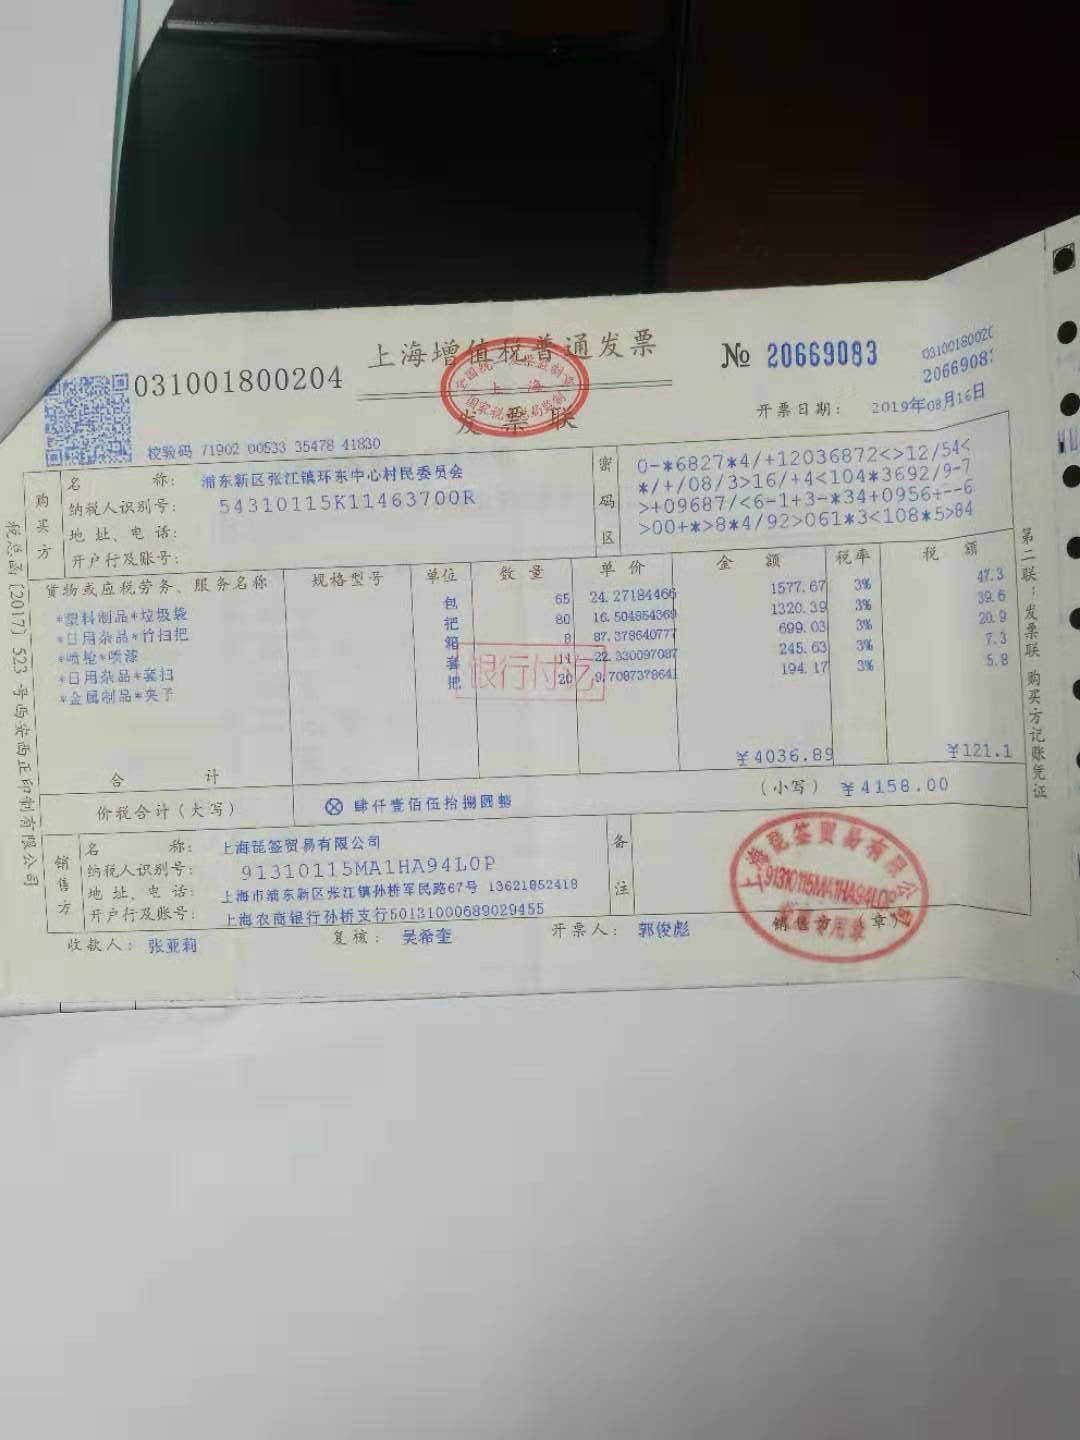 上海增值税普通发票
发票联
031001800204
№ 20669083
03100180020
2066908
校验码 71902 00533 35478 41830
开票日期: 2019年08月16日
购买方
名称: 浦东新区张江镇环东中心村民委员会
纳税人识别号: 54310115K11463700R
地址、电话:
开户行及账号:
密码区
0-*6827*4/+12036872<>12/54<
*/+/08/3>16/+4<104*3692/9-7
>+09687/<6-1+3-*34+0956+--6
>00+*>8*4/92>061*3<108*5>84
货物或应税劳务、服务名称 规格型号 单位 数量 单价 金额 税率 税额
*塑料制品*垃圾袋 包 65 24.27184466 1577.67 3% 47.3
*日用杂品*竹扫把 把 80 16.504854369 1320.39 3% 39.6
*喷枪*喷漆 箱 8 87.378640777 699.03 3% 20.9
*日用杂品*套扫 套 11 22.330097087 245.63 3% 7.3
*金属制品*夹子 把 20 9.708737864 194.17 3% 5.8
银行付讫
合计 ¥4036.89 ¥121.1
价税合计(大写) ⊗ 肆仟壹佰伍拾捌圆整 (小写) ¥4158.00
销售方
名称: 上海琵签贸易有限公司
纳税人识别号: 91310115MA1HA94L0P
地址、电话: 上海市浦东新区张江镇孙桥军民路67号 13621852418
开户行及账号: 上海农商银行孙桥支行50131000689029455
备注
收款人: 张亚莉 复核: 吴希奎 开票人: 郭俊彪 销售方:(章)
上海琵签贸易有限公司
91310115MA1HA94L0P
发票专用章
全国统一发票监制章
上海
国家税务总局监制
第二联:发票联 购买方记账凭证
税总函〔2017〕523号